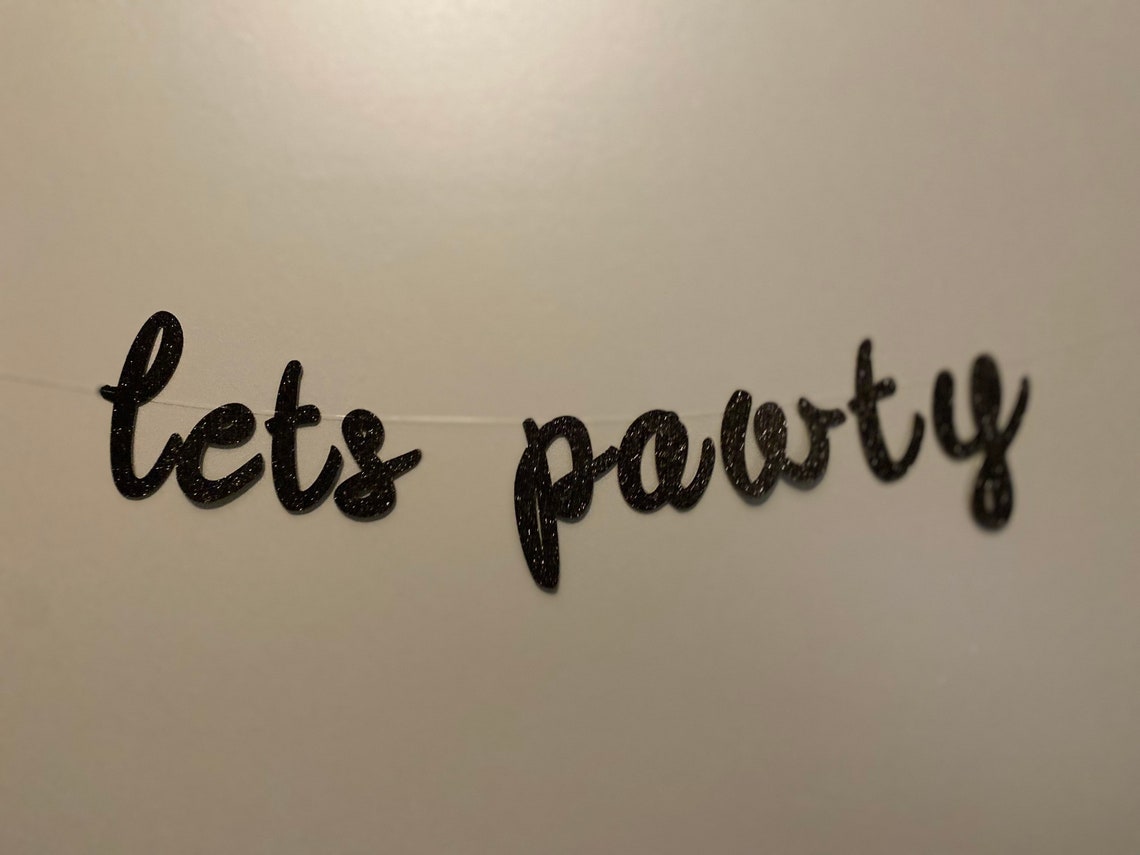 lets pawty